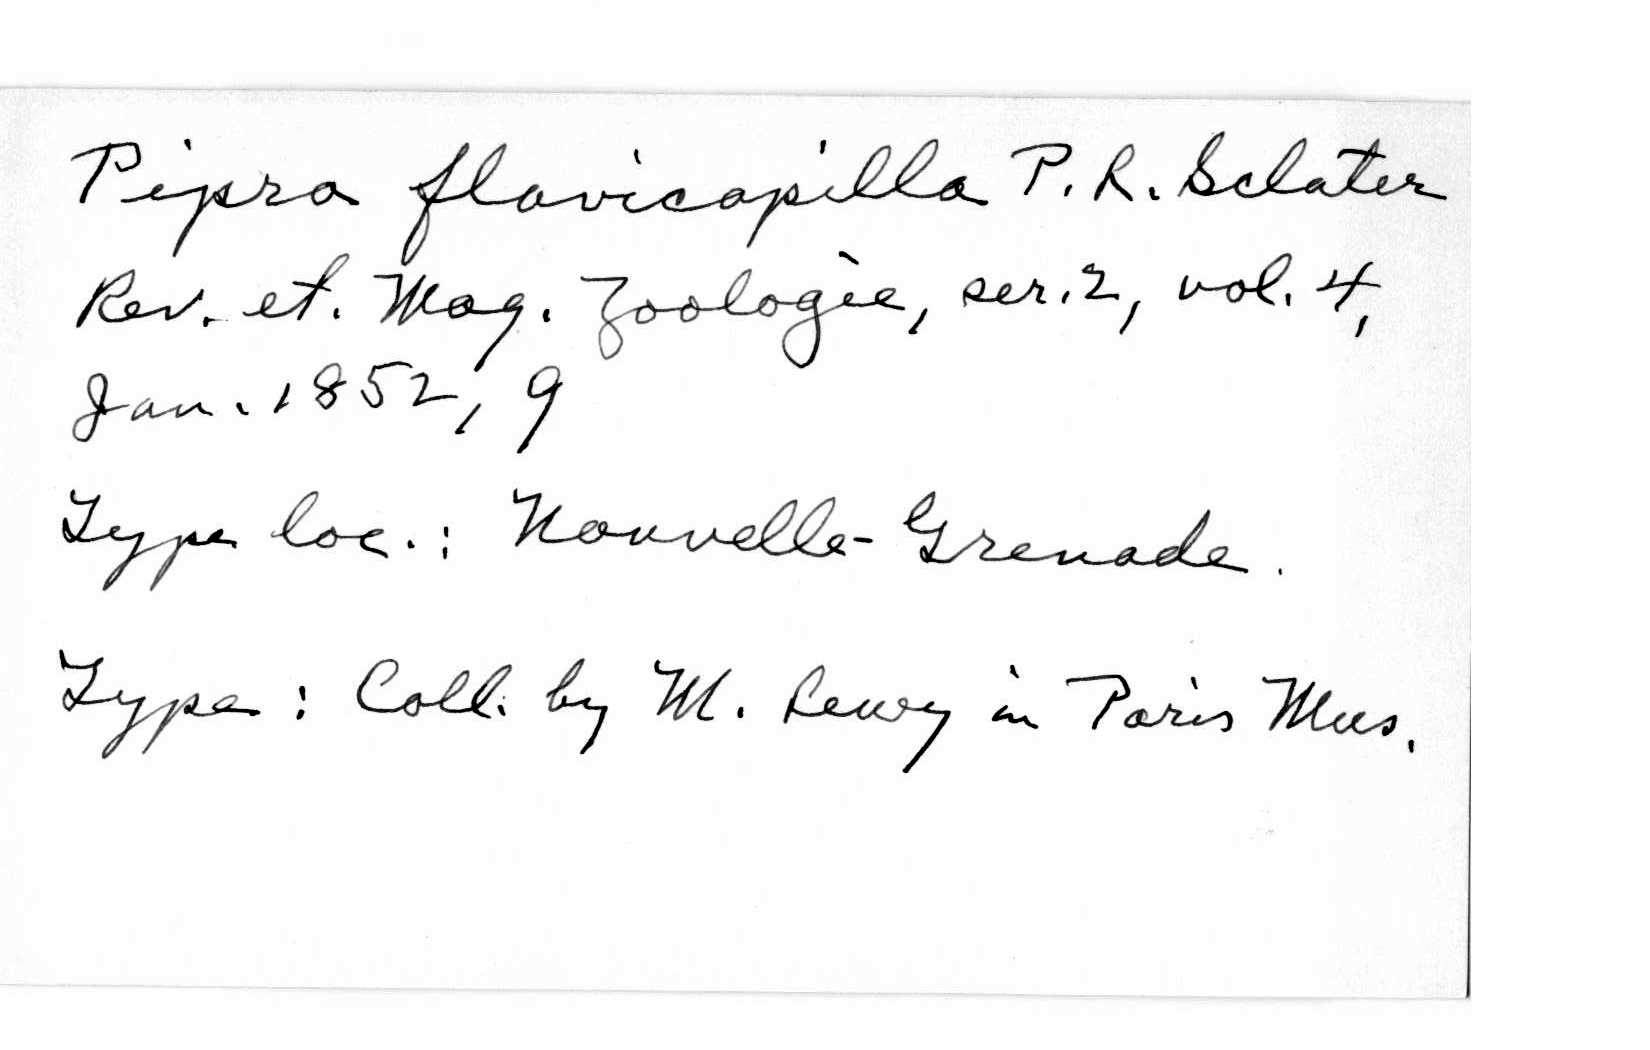 Pipra flavicapilla P. L. Sclater
Rev. et. Mag. Zoologie, ser. 2, vol. 4,
Jan. 1852, 9
Type loc.: Nouvelle-Grenade.
Type: Coll. by M. Lewy in Paris Mus.